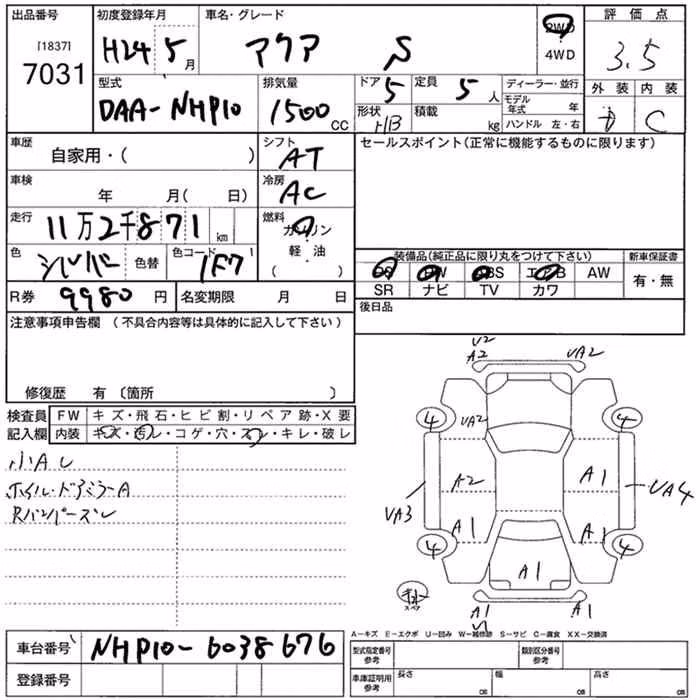 出品番号
[1837]
7031
初度登録年月
H24 5月
車名・グレード
アクア S
2WD
4WD
評価点
3.5
外装 内装
D C
型式
DAA-NHP10
排気量
1500 CC
ドア 5
定員 5 人
形状 HB
積載 kg
ディーラー・並行
モデル年式 年
ハンドル 左・右
車歴
自家用・( )
シフト
AT
車検
年 月( 日)
冷房
AC
走行
11万2千871 km
燃料
ガソリン
軽・油
( )
色
シルバー
色替
色コード
1F7
R券 9980 円
名変期限 月 日
セールスポイント(正常に機能するものに限ります)
装備品(純正品に限り丸をつけて下さい)
PS PW ABS エアB AW
SR ナビ TV カワ
新車保証書
有・無
後日品
注意事項申告欄 (不具合内容等は具体的に記入して下さい)
修復歴 有 〔箇所 〕
検査員
記入欄
FW キズ・飛石・ヒビ割・リペア跡・X要
内装 キズ・汚レ・コゲ・穴・スレ・キレ・破レ
小AU
ホイル・ドアミラーA
Rバンパーズレ
U2
A2
UA2
4
UA2
4
A2
A1
UA3
UA4
A1
A1
4
4
A1
スペア
A1
A1
A-キズ E-エクボ U-凹み W-補修跡 S-サビ C-腐食 XX-交換済
車台番号
NHP10-6038676
登録番号
型式指定番号
参考
類別区分番号
参考
車庫証明用
参考
長さ cm
幅 cm
高さ cm